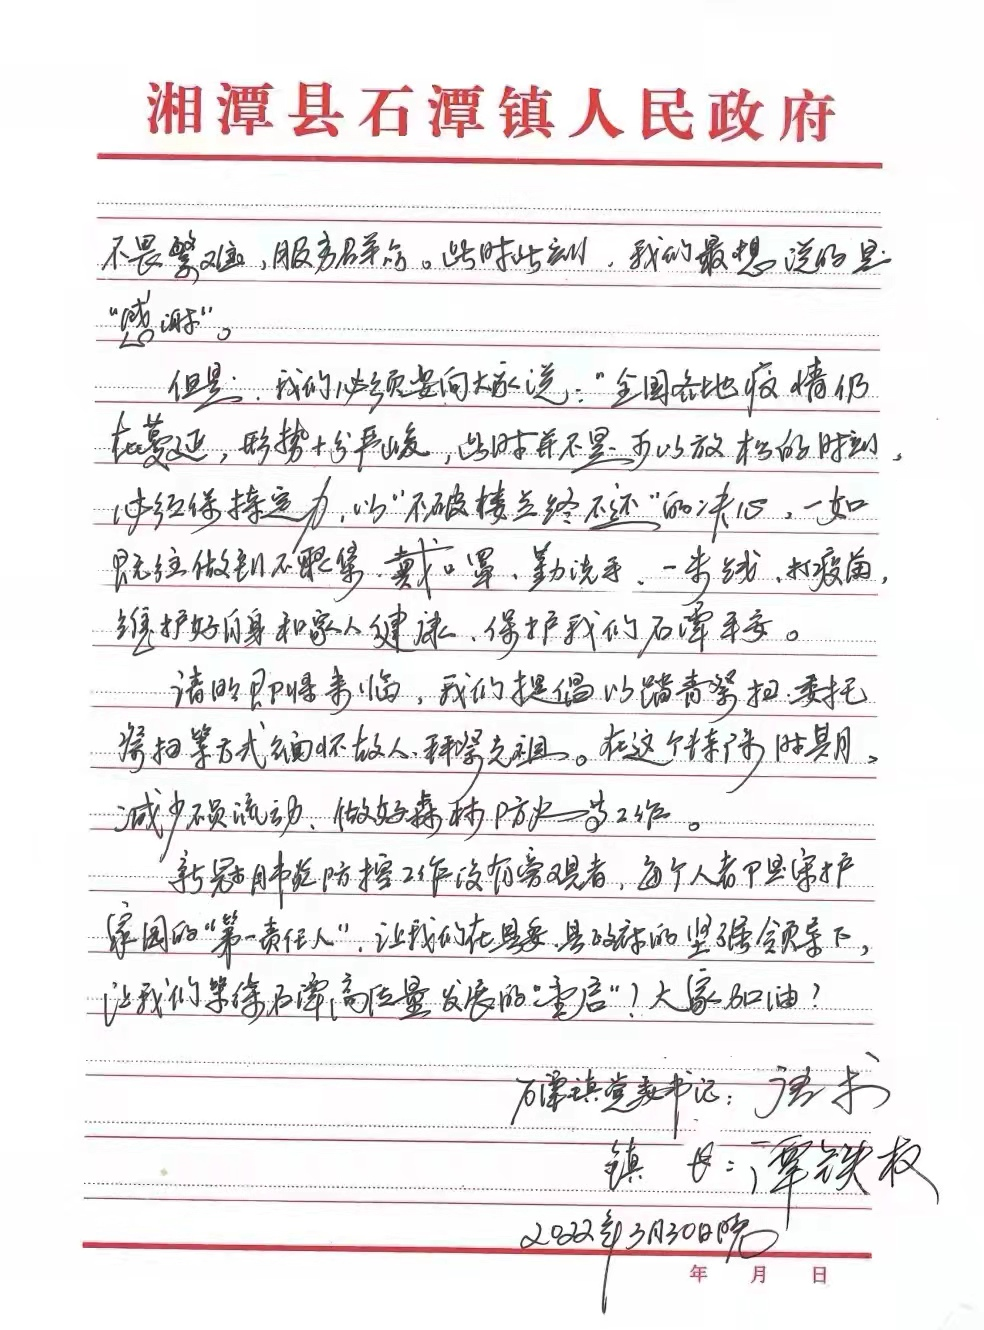 湘潭县石潭镇人民政府
不畏繁难,服务群众。此时此刻,我们最想说的是
“感谢”。
但是,我们必须要向大家说:“全国各地疫情仍
在蔓延,形势十分严峻,此时并不是可以放松的时刻,
必须保持定力,以“不破楼兰终不还”的决心,一如
既往做到不聚集、戴口罩、勤洗手、一米线、打疫苗,
维护好自身和家人健康、保护我们石潭平安。
清明即将来临,我们提倡以踏青祭扫、委托
祭扫等方式缅怀故人、拜祭先祖。在这个特殊时期,
减少人员流动、做好森林防火等工作。
新冠肺炎防控工作没有旁观者,每个人都是保护
家园的“第一责任人”,让我们在县委、县政府的坚强领导下,
让我们等待石潭高质量发展的“重启”!大家加油!
石潭镇党委书记:
镇 长:谭铁权
2022年3月30日晚
年 月 日